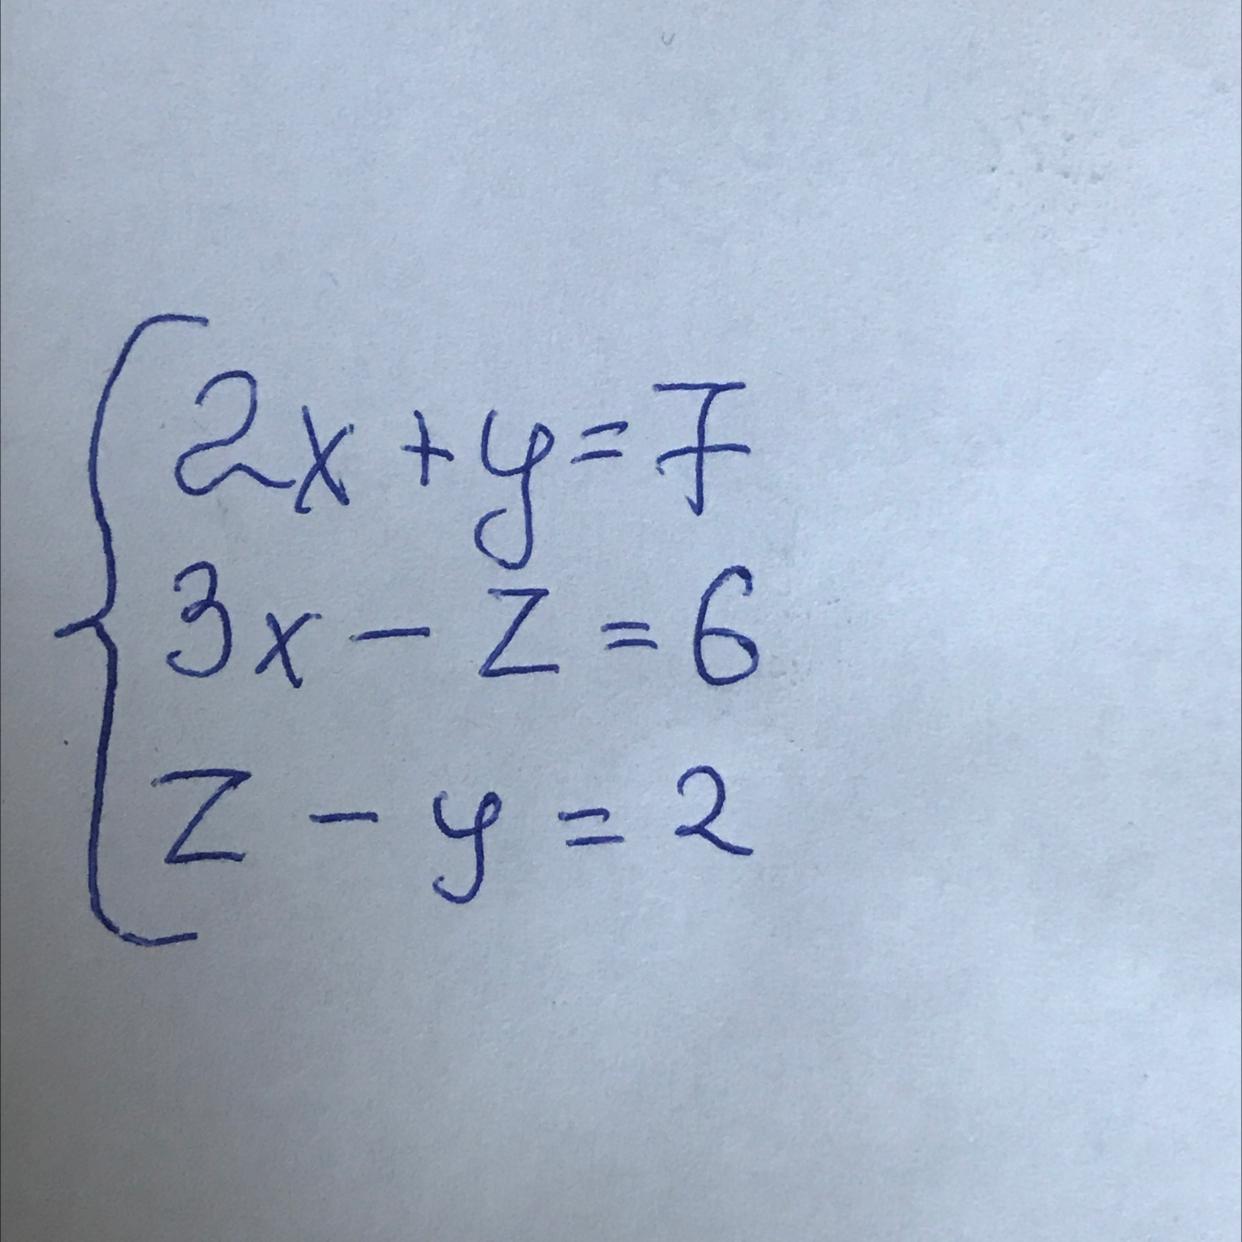 2x + y = 7
3x - z = 6
z - y = 2